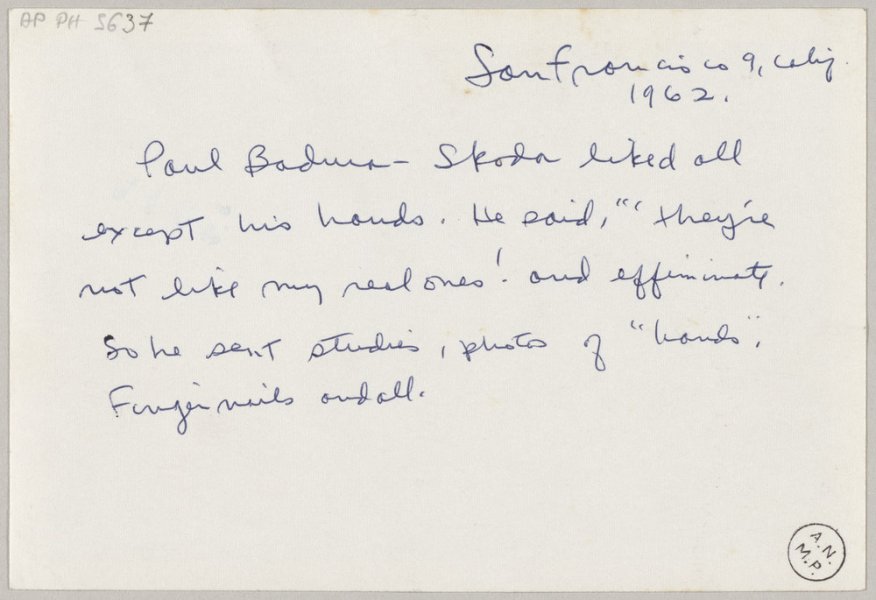 AP PH 5637
San Francisco 9, Calif.
1962.
Paul Badura-Skoda liked all
except his hands. He said, "'they're
not like my real ones'! and effiminate.
So he sent studies, photos of "hands",
Finger nails and all.
A.N.
M.P.